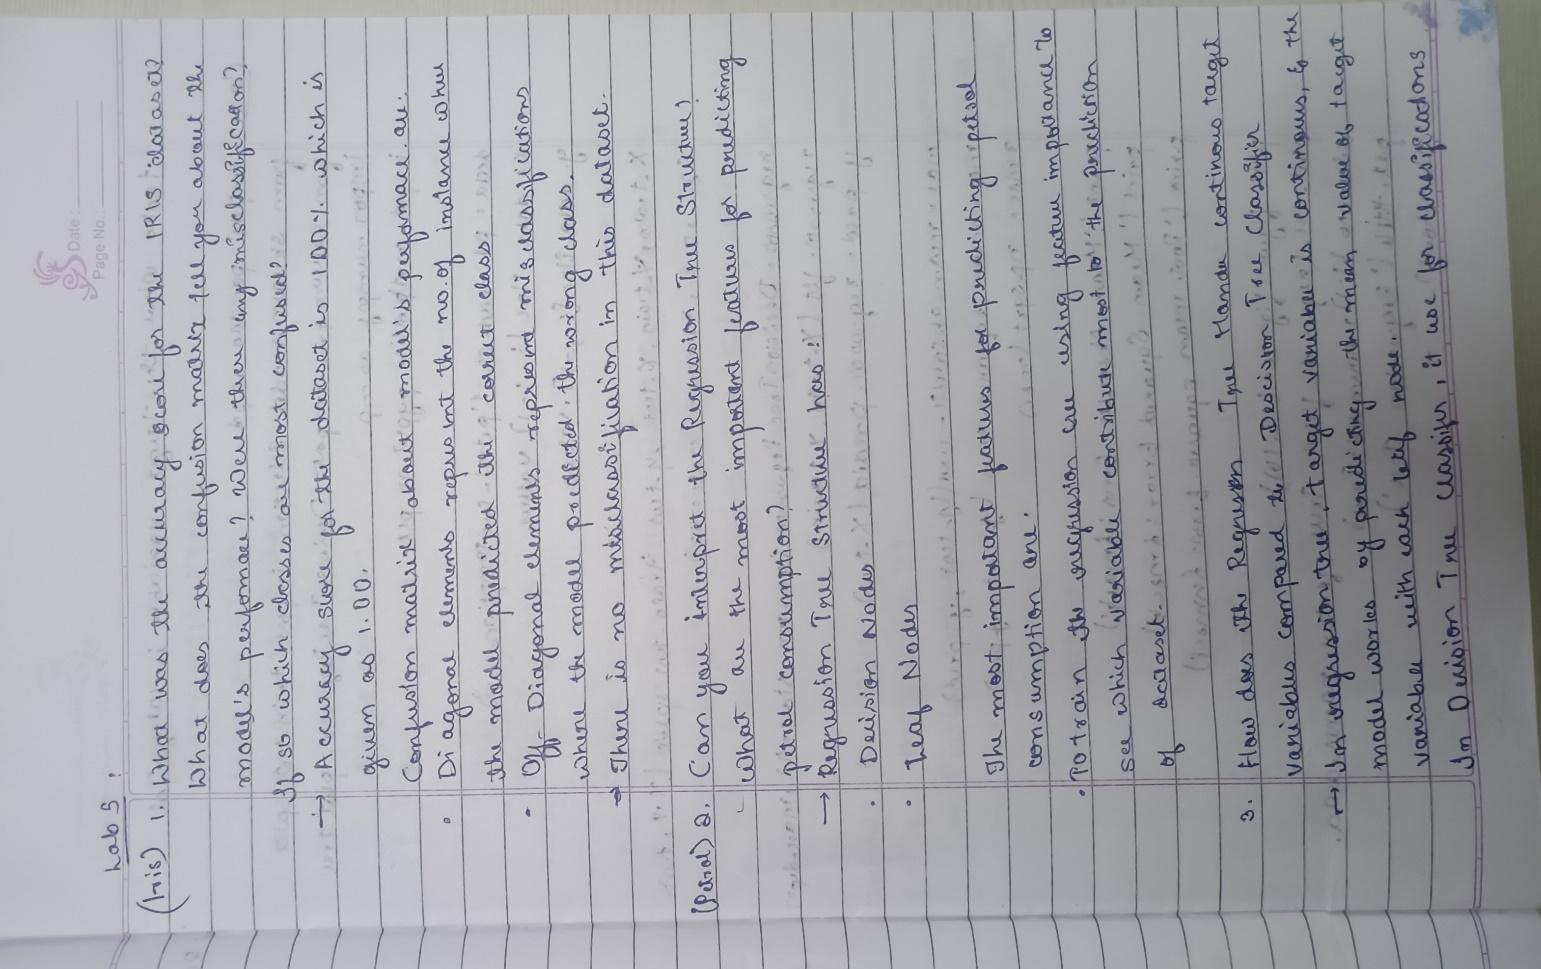 Date:
Page No.:
Lab 5:
(Iris) 1. What was the accuracy score for the IRIS dataset?
What does the confusion matrix tell you about the
model's perfomace? Were there any misclassification?
If so which classes are most confused?
→ Accuracy score for the dataset is 100% which is
given as 1.00.
Confusion matrix about model's performace are.
• Diagonal elements represent the no. of instance where
the model predicted the correct class.
• Off-Diagonal elements represent misclassifications
where the model predicted the wrong class.
→ There is no misclassifiation in this dataset.
(Petrol) 2. Can you interpret the Regression Tree Structure?
- What are the most important features for predicting
petrol consumption?
→ Regression Tree structure has:
• Decision Nodes
• Leaf Nodes
The most important features for predicting petrol
consumption are.
• To train the regression tree using feature importance to
see which variable contribute most to the prediction
of dataset.
3. How does the Regression Tree Handle continous target
variables compared to Descision Tree Classifier
→ In regression tree, target variable is continous, & the
model works by predicting the mean value of target
variable with each leaf node.
In Decision Tree classifier, it use for classifications